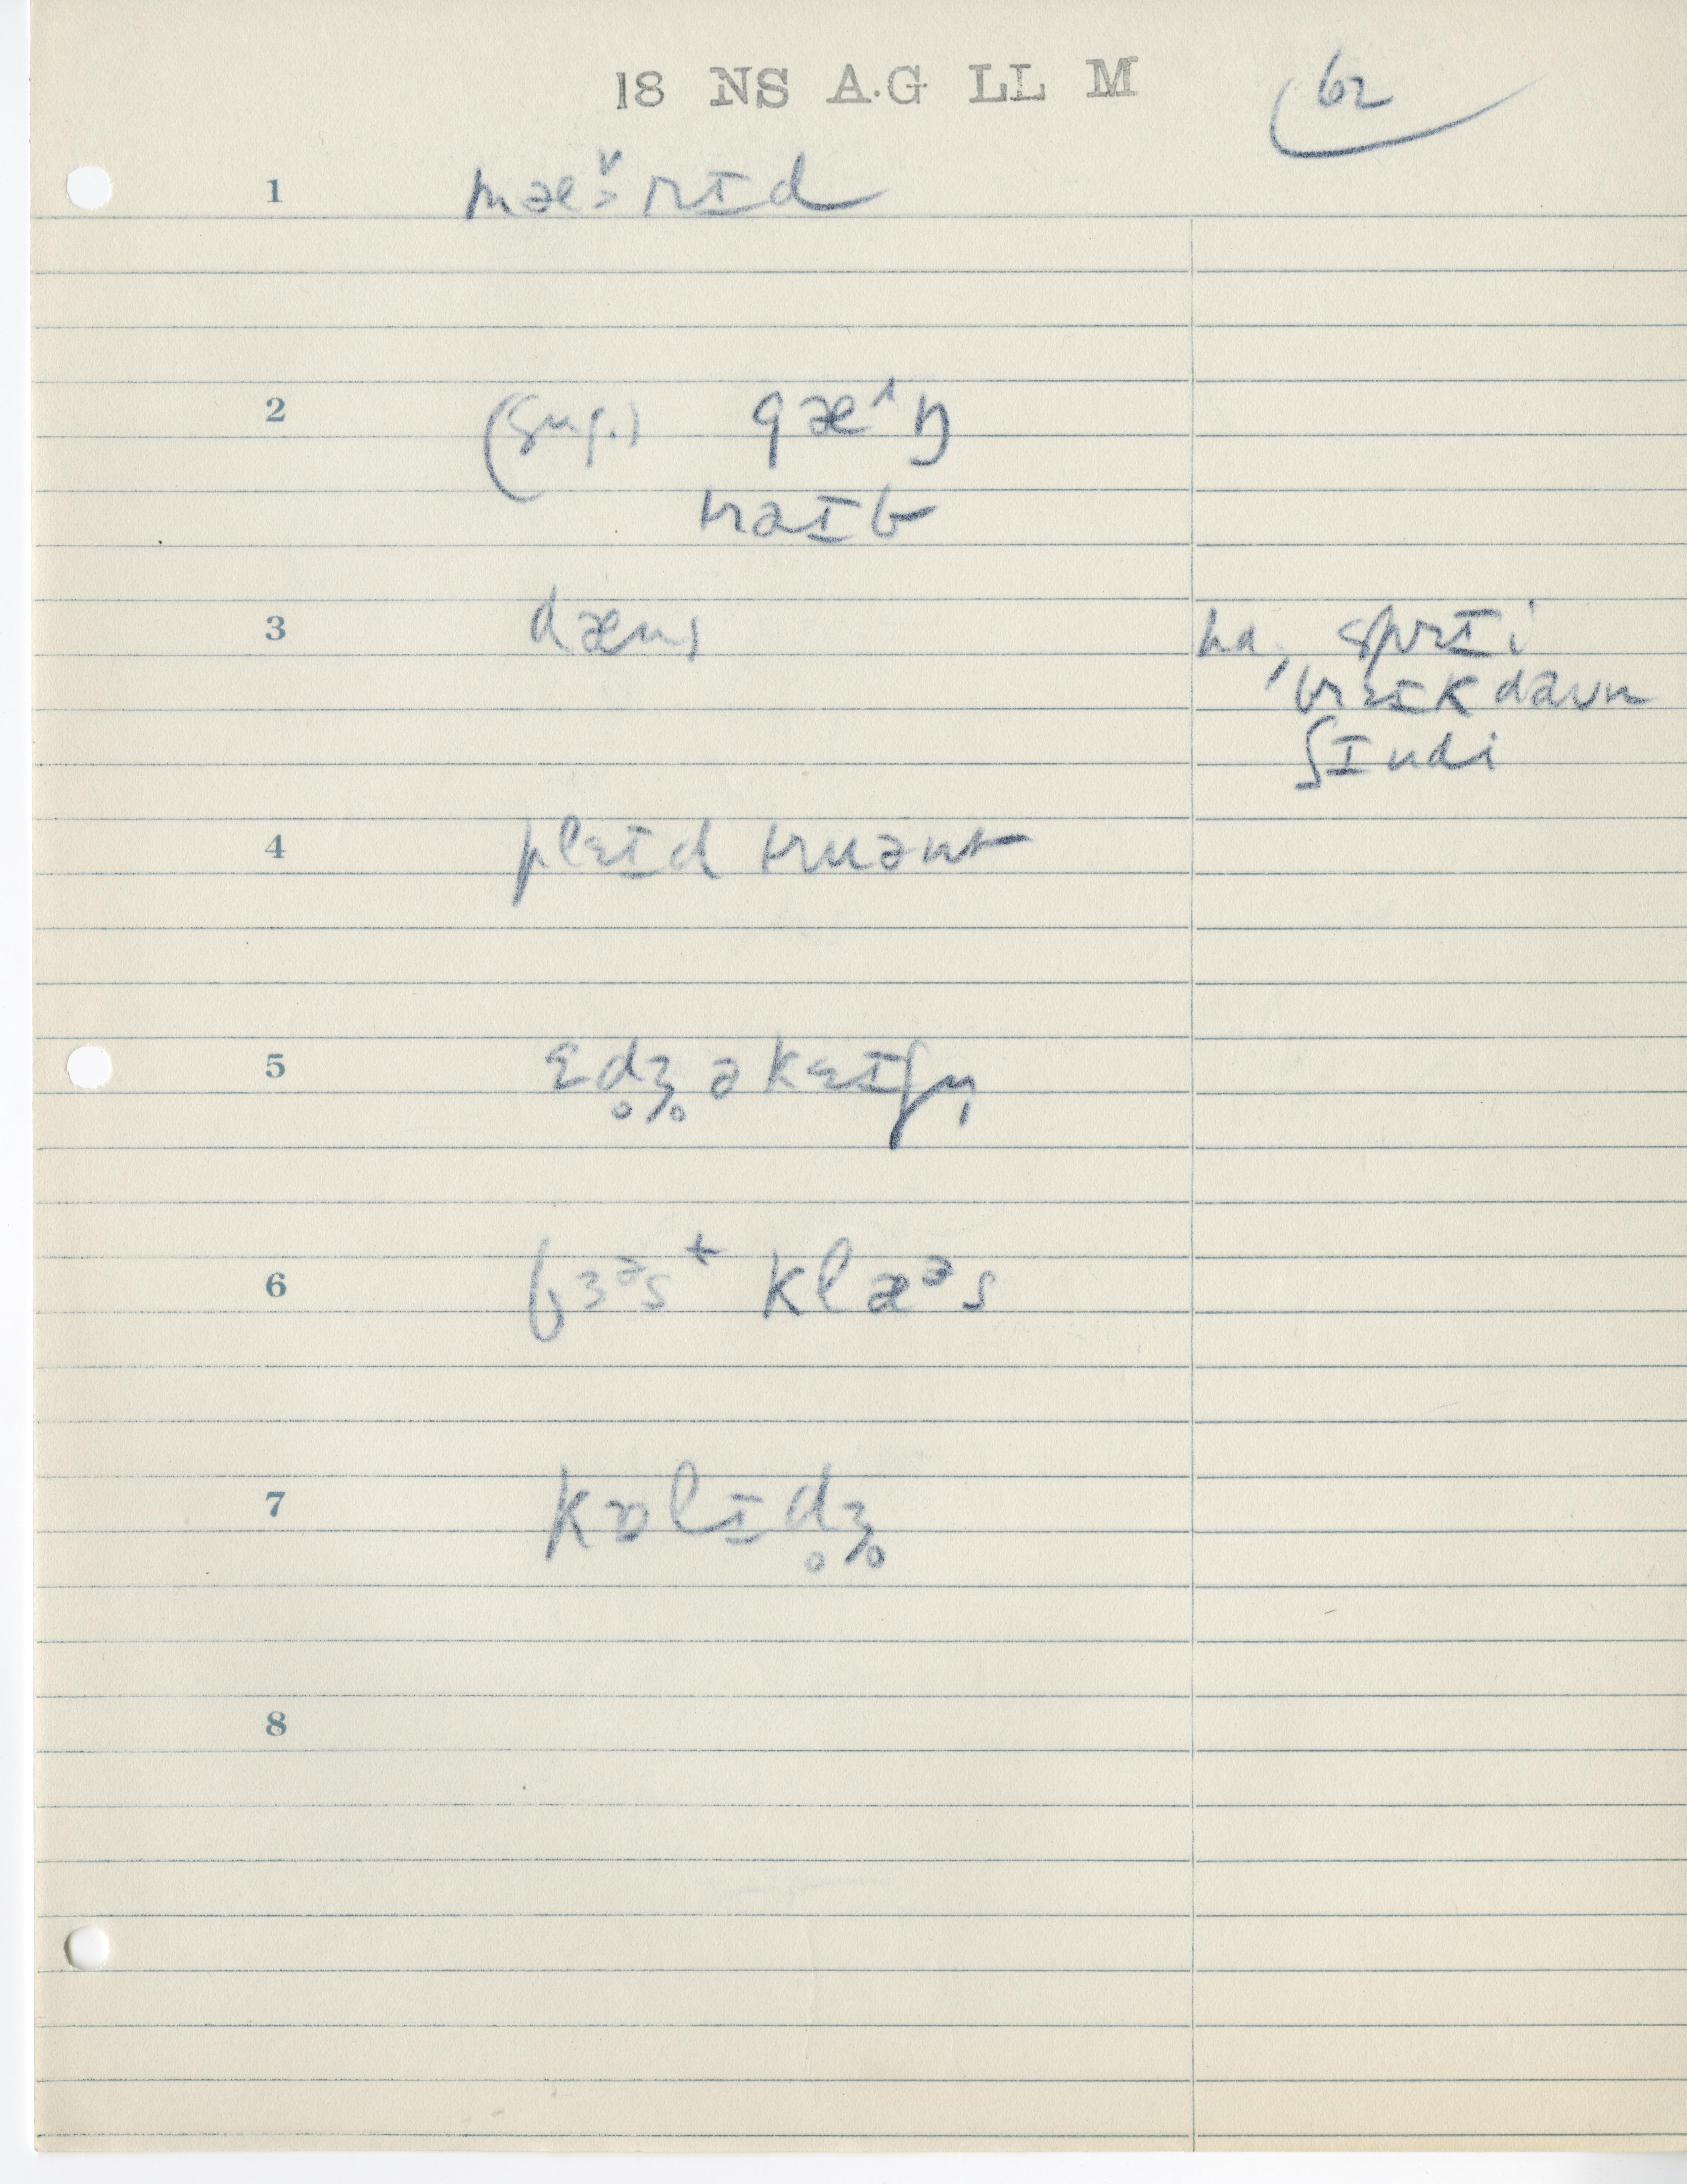 18 NS A.G LL M
62
1 mæ˅˃rɪd
2 (sug.) gæ˄ŋ
traɪb
3 dæns
ha, spri
breɪkdaʊn
ʃɪndi
4 plɛɪd truənt
5 ɛd̥ʒ̥əkɛɪʃn̩
6 fɜᵊst klæᵊs
7 kɒlɪd̥ʒ̥
8